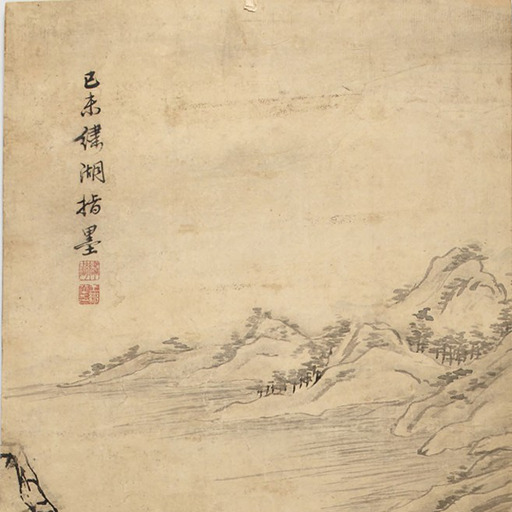 己未繡湖指墨